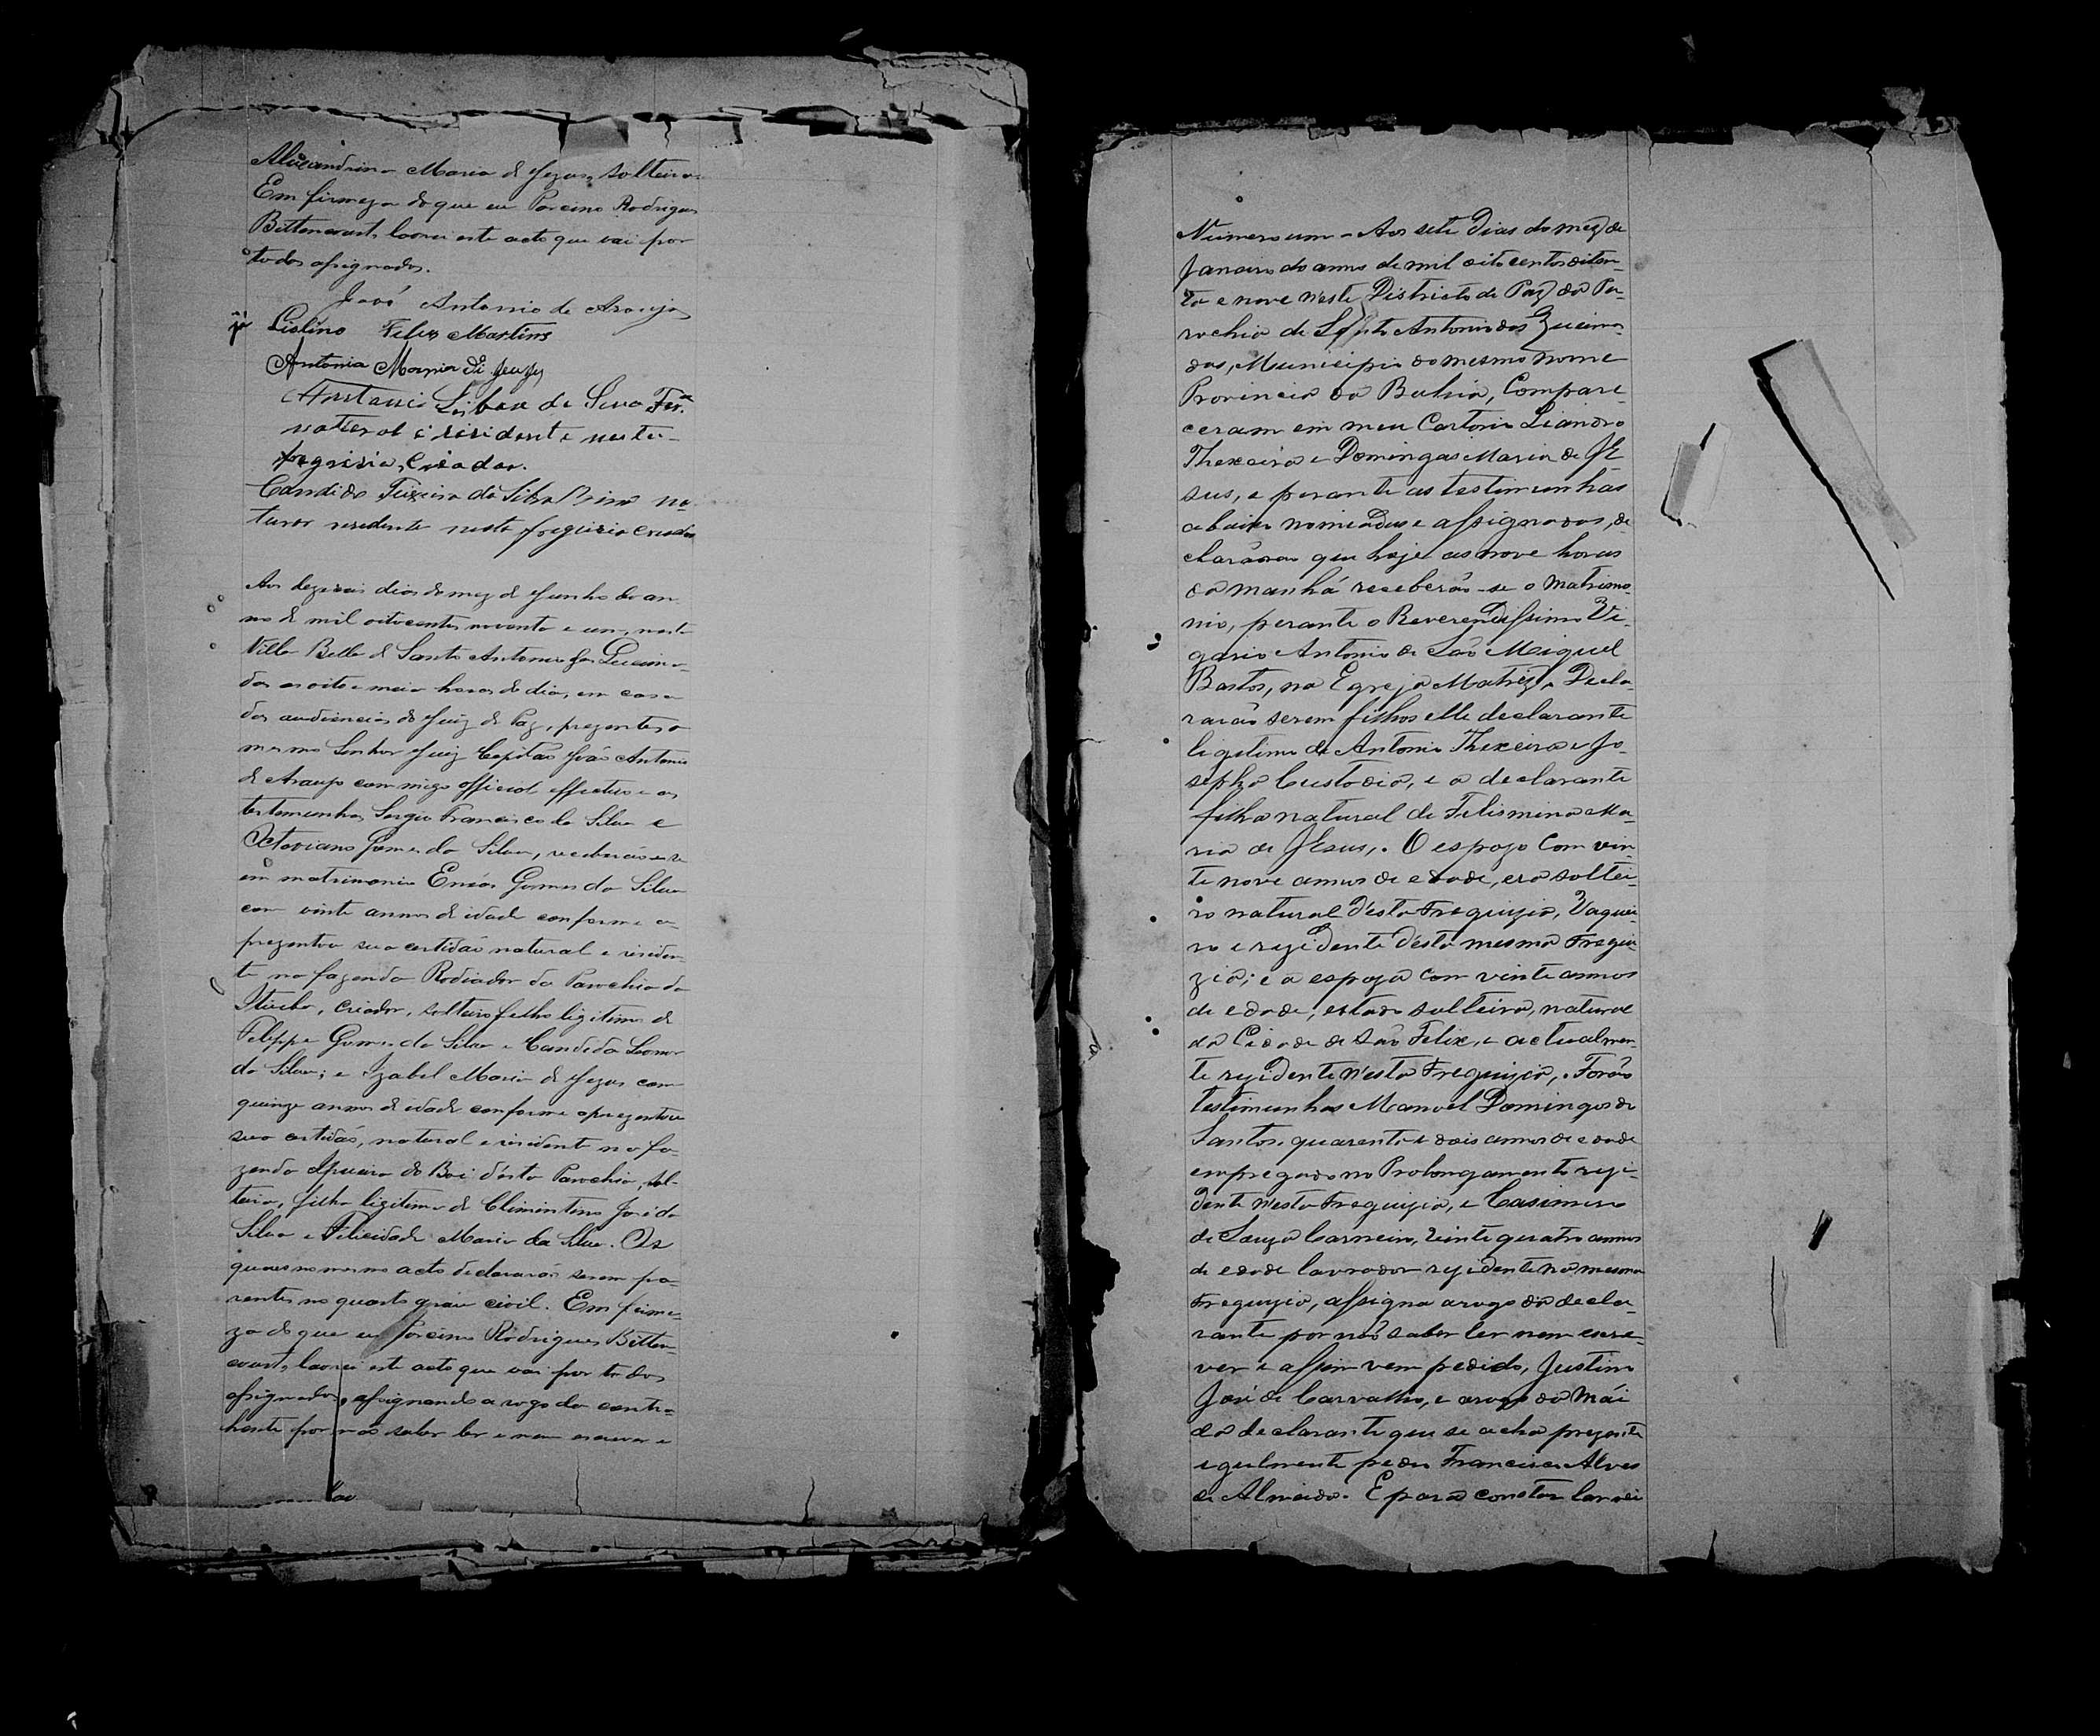 Alexandrina Maria de Jezus, solteira.
Em firmeza do que eu Porcino Rodrigues
Bittencourt, lavrei este acto que vai por
todos assignados.
José Antonio de Araujo
Felix Martins
Antonia Maria di Jeuzes
Lisboa da
natural i risidente nesta
fregisia, Criador.
Candido Teixeira da Silva na
turar residente nesta fregisia creador
Aos dezeseis dias do mez de Junho do an
no de mil oitocentos noventa e um, nesta
Villa Bella de Santo Antonio das Queima
das as oito e meia horas do dia, em casa
das audiencias do Juiz de Paz, prezentes o
mesmo Senhor Juiz Capitão João Antonio
de Araujo commigo official effectivo e as
testemunhas Sergio Francisco da Silva e
Octaviano Gomes da Silva, receberão-se
em matrimonio Enéas Gomes da Silva
com vinte annos de idade conforme a-
prezentou sua certidão natural e residen-
te na fazenda Rodiador da Parochia do
Itiuba, criador, solteiro filho ligitimo de
Felippe Gomes da Silva e Candida Leonor
da Silva; e Izabel Maria de Jezus com
quinze annos de idade conforme aprezentou
sua certidão, natural e residente na fa-
zenda Ipueira do Boi désta Parochia, sol-
teira, filha ligitima de Climintino José da
Silva e Felicidade Maria da Silva. Os
quaes no mesmo acto declararão serem pa-
rentes no quarto gráu civil. Em firme-
za do que eu Porcino Rodrigues Bitten-
court, lavrei este acto que vai por todos
assignados, assignando a rogo da contra-
hente por não saber ler e nem escrever e
Numero um - Aos sete Dias do mez de
Janeiro do anno de mil oitocentos oiten-
ta e nove n'este Districto de Paz da Pa-
rochia de Santo Antonio das Queima-
das, Municipio do mesmo nome
Provincia da Bahia, Compare-
ceram em meu Cartorio Liandro
Thexeira e Domingas Maria de Je
sus, e perante as testimunhas
abaixo nomeadas e assignadas, de
clarárão que hoje as nove horas
da manhá receberão-se o Matrimo-
nio, perante o Reverendissimo Vi-
gario Antonio de São Meiguel
Bastos, na Egreja Matriz, Decla-
rarão serem filhos elle declarante
ligitimo de Antonio Thexeira e Jo-
sepha Custodia, e a declarante
filha natural de Felismina Ma-
ria de Jesus,. O espozo Com vin-
te nove annos de edade, era soltei-
ro natural d'esta Freguizia, Vaquei-
ro e rezidente d'ésta mesma Fregui
zia; e a espoza com vinte annos
de edade, estado solteira, natural
da Cidade de São Felix, e actualmen-
te rezidente n'esta Freguizia,. Forão
testimunhas Manoel Domingos do
Santos, quarenta e dois annos de edade
empregado no Prolongamento rezi-
dente n'esta Freguizia, e Casimiro
de Souza Carneiro, vinte quatro annos
de edade lavrador rezidente na mesma
Freguizia, assigna arogo da decla-
rante por não saber ler nem escre-
ver e assim vem pedido, Justino
José de Carvalho, e arogo da Mãi
da declarante que se acha prezente
egualmente pedio Francisco Alves
de Almeida. E para constar lavrei